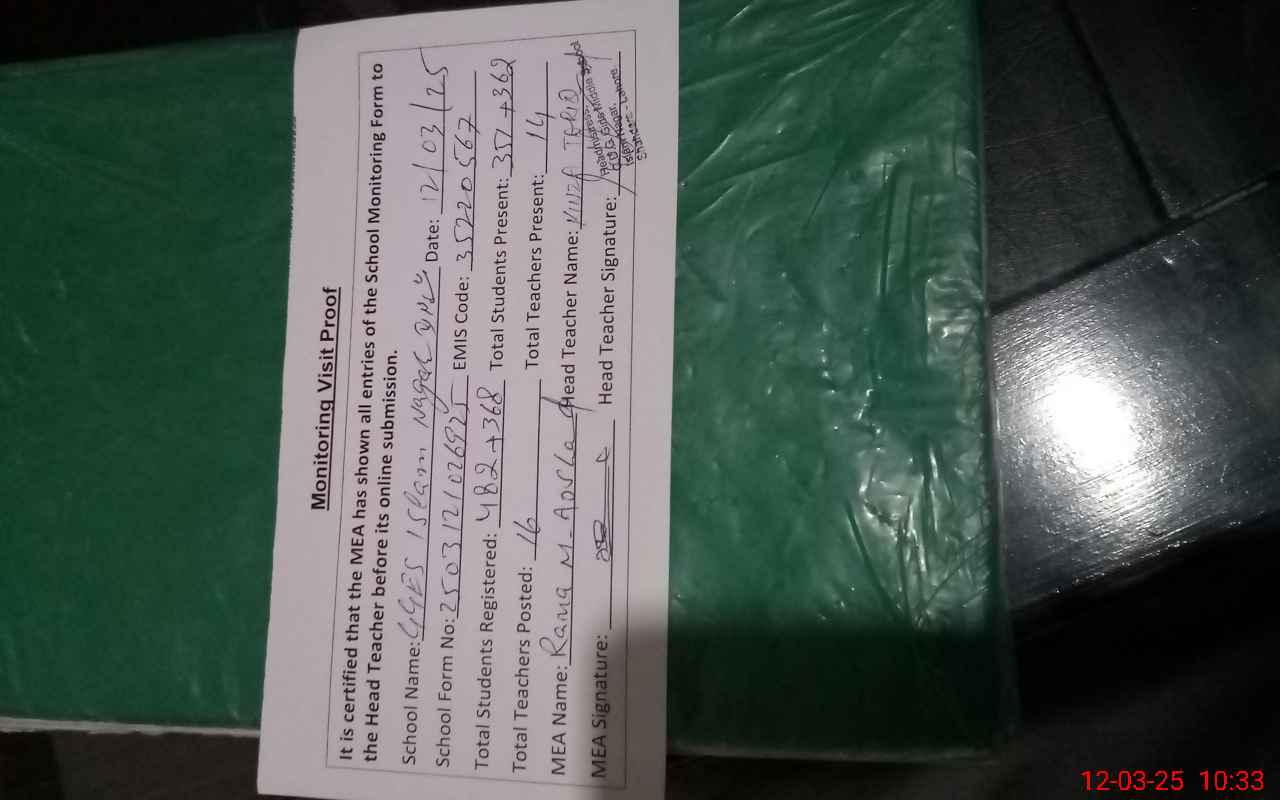 Monitoring Visit Proof
It is certified that the MEA has shown all entries of the School Monitoring Form to
the Head Teacher before its online submission.
School Name: GGES Islam Nagar Date: 12/03/25
School Form No: 2503121026925 EMIS Code: 35220567
Total Students Registered: 482+368 Total Students Present: 357+362
Total Teachers Posted: 16 Total Teachers Present: 14
MEA Name: Rana M. Arshad Head Teacher Name: KINZA TARIQ
MEA Signature: Head Teacher Signature:
Headmistress
Govt. Girls Middle School
Islam Nagar,
Lahore
12-03-25 10:33